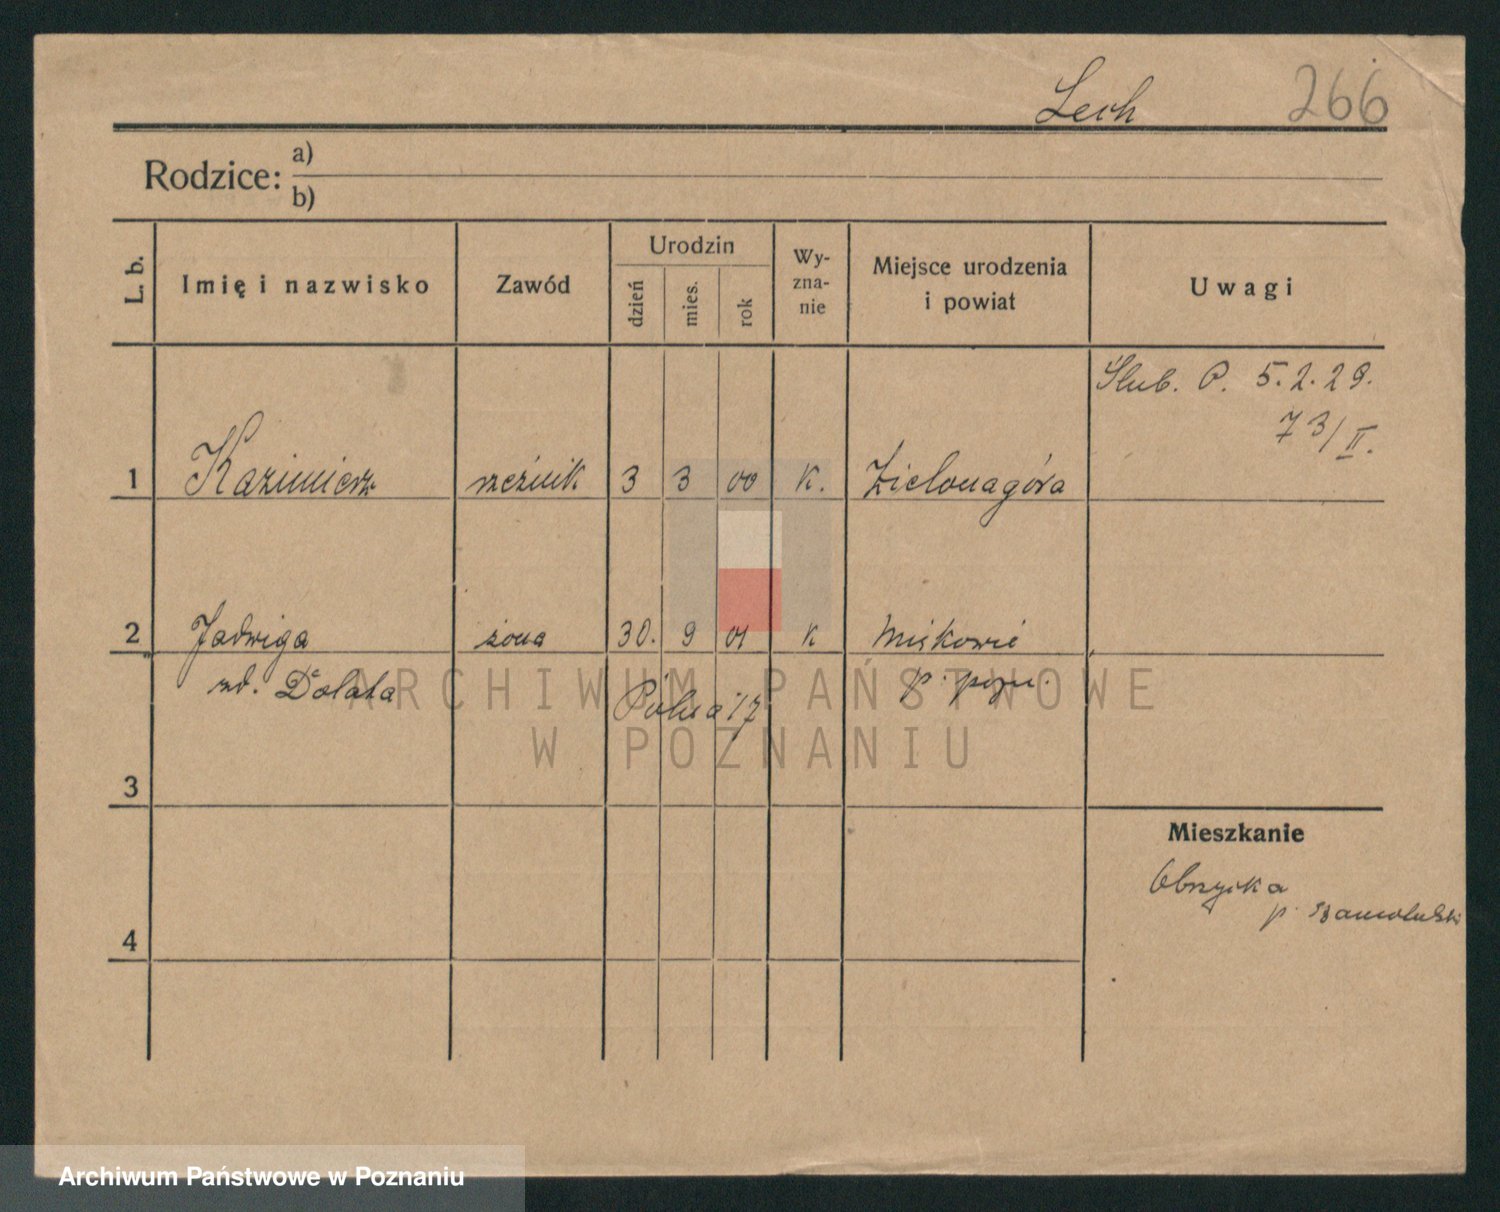 Lech 266
Rodzice: a)
b)
L. b. Imię i nazwisko Zawód Urodzin dzień mies. rok Wy-zna-nie Miejsce urodzenia i powiat Uwagi
Ślub. P. 5.2.29.
73/II.
1 Kazimierz rzeźnik 3 3 00 K. Zielonagóra
2 Jadwiga żona 30. 9 01 K
zd. Dolata p. pozn.
17
ARCHIWUM PAŃSTWOWE
W POZNANIU
3
Mieszkanie
Obrzycka
p. Szamotulski
4
Archiwum Państwowe w Poznaniu